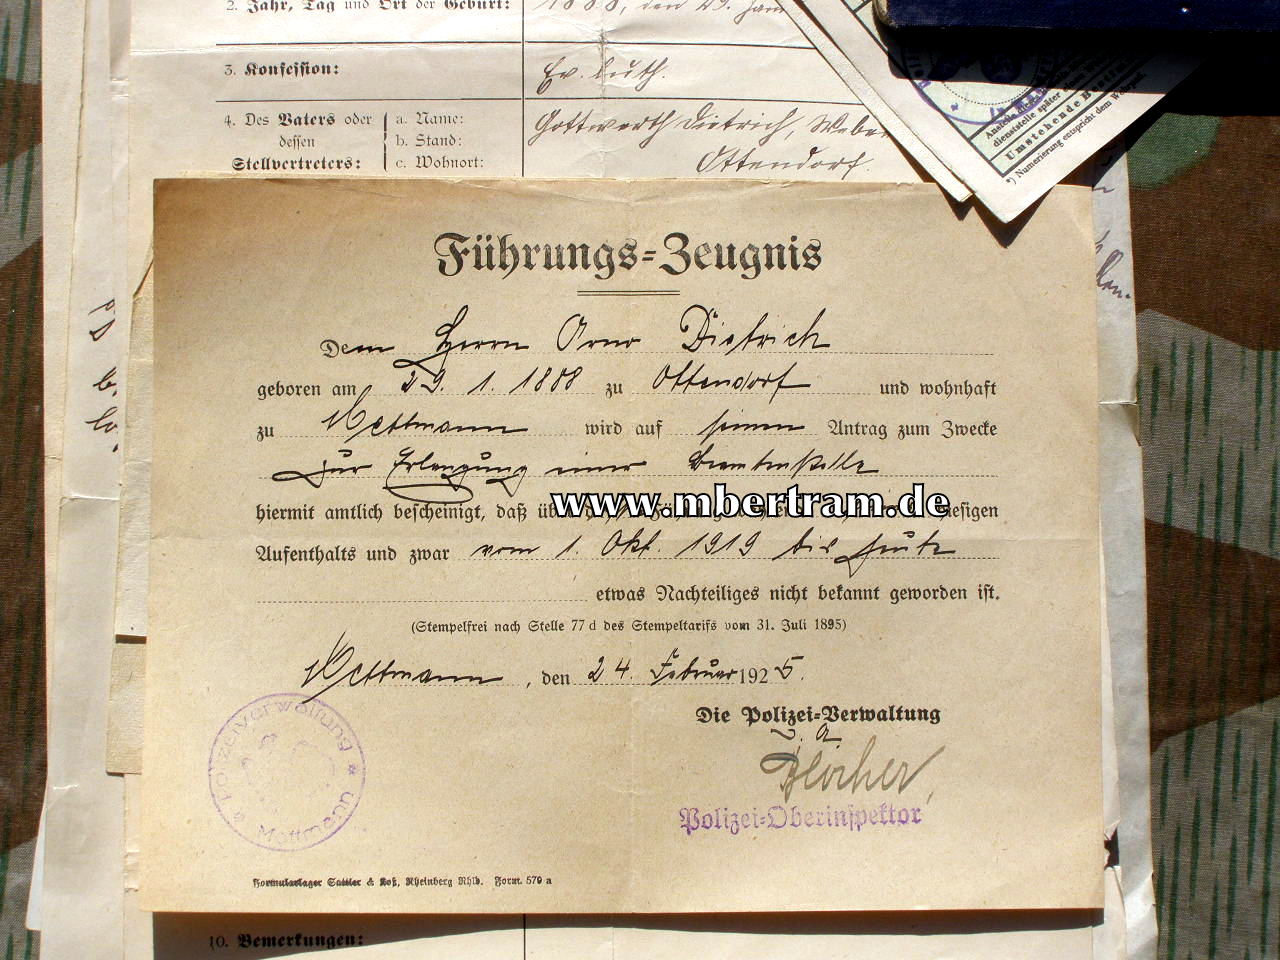 2. Jahr, Tag und Ort der Geburt: 1888, den 29. Jan
3. Konfession: Ev. luth.
4. Des Vaters oder dessen Stellvertreters:
a. Name: Gottwerth Dietrich, Weber
b. Stand:
c. Wohnort: Ottendorf.
dienststelle später
Umstehende
*) Numerierung entspricht dem Wehrpaß
Führungs-Zeugnis
Dem Herrn Arno Dietrich
geboren am 29. 1. 1888 zu Ottendorf und wohnhaft
zu Mettmann wird auf seinen Antrag zum Zwecke
zur Erlangung einer Beamtenstelle
www.mbertram.de
hiermit amtlich bescheinigt, daß über hiesigen
Aufenthalts und zwar vom 1. Okt. 1919 bis heute
etwas Nachteiliges nicht bekannt geworden ist.
(Stempelfrei nach Stelle 77 d des Stempeltarifs vom 31. Juli 1895)
Mettmann, den 24. Februar 1925.
Die Polizei-Verwaltung
J. A.
Polizei-Oberinspektor
* Polizeiverwaltung * Mettmann
Formularlager Sattler & Koß, Rheinberg Rhld. Form. 579 a
10. Bemerkungen: